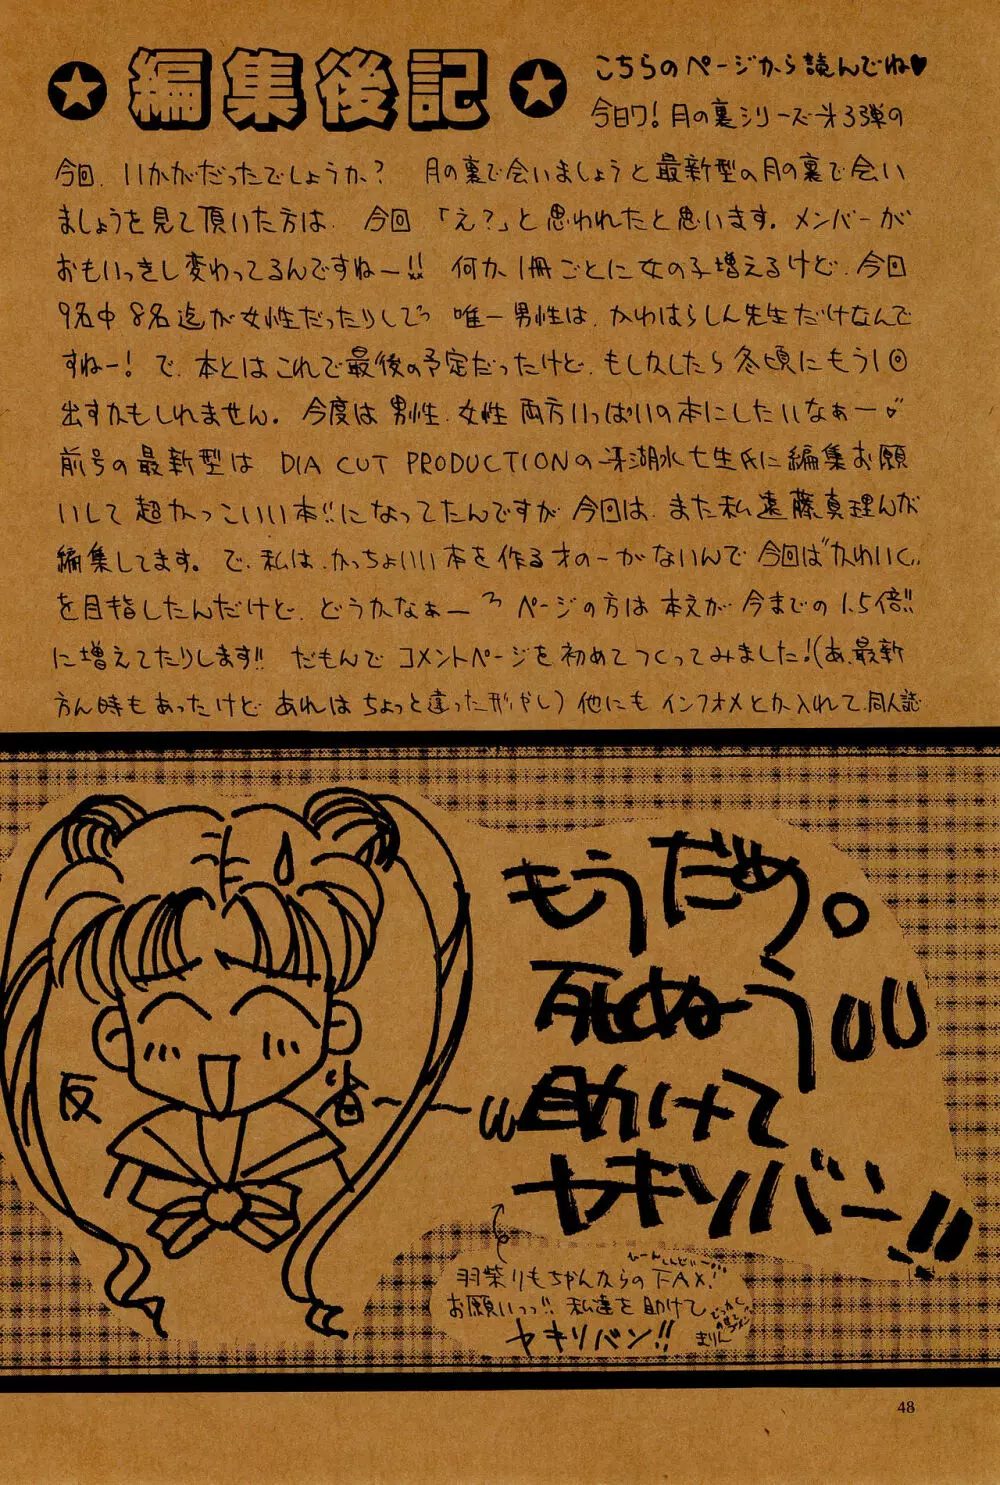 ★編集後記★
こちらのページから読んでね♥
今日ワ!月の裏シリーズ 才3弾の
今回、いかがだったでしょうか? 月の裏で会いましょうと最新型の月の裏で会い
ましょうを見て頂いた方は、今回「え?」と思われたと思います。メンバーが
おもいっきし変わってるんですねー!! 何か1冊ごとに女の子増えるけど、今回
9名中8名迄が女性だったりしてっ 唯一男性は、かわはらしん先生だけなんで
すねー!で、本とはこれで最後の予定だったけど、もしかしたら冬頃にもう1回
出すかもしれません。今度は男性、女性 両方いっぱいの本にしたいなぁー
前号の最新型は DIA CUT PRODUCTIONの 湖水七生氏に編集お願
いして超かっこいい本!!になってたんですが今回は、また私遠藤真理んが
編集してます。で、私は、かっちょいい本を作る才のーがないんで今回は"かわいく"
を目指したんだけど、どうかなぁー ページの方は本文が今までの1.5倍!!
に増えてたりします!! だもんでコメントページを初めてつくってみました!(あ、最新
方ん時もあったけど あれはちょっと違った形やし)他にもインフォメとか入れて、同人誌
もうだめ。
死ぬぅUU
反省〜〜〜
助けて
ヤキソバン!!
ひーん
羽柴りもちゃんからのFAX!
お願いっっ!! 私達を助けて
ヤキソバン!!
まりん
48